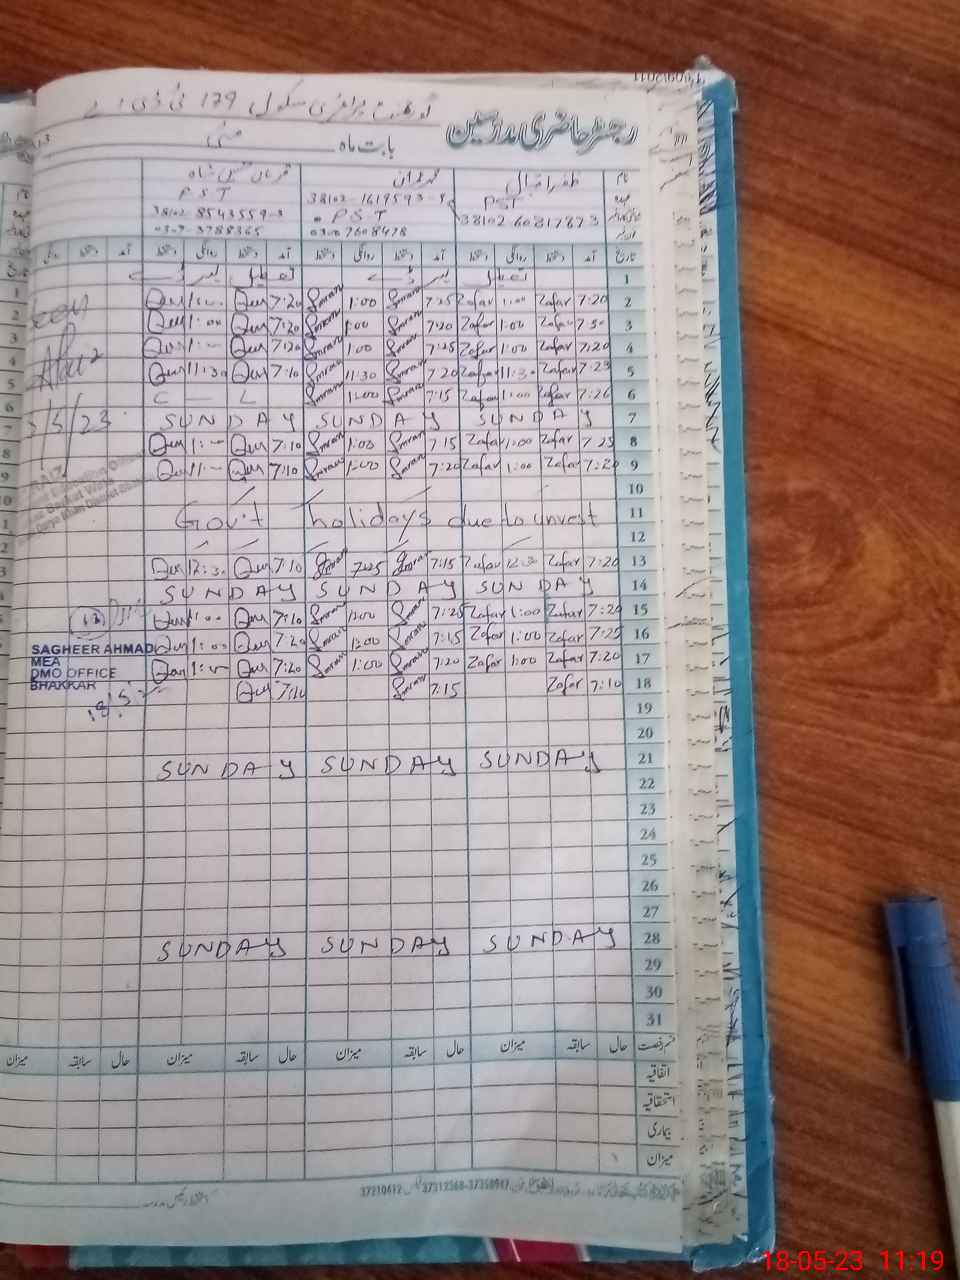 گورنمنٹ پرائمری سکول 179 ٹی ڈی اے
رجسٹر حاضری مدرسین
بابت ماہ مئی
نام ظفر اقبال محمد عمران قربان حسین شاہ
عہدہ PST PST PST
38102-6081787-3 38102-1619593-9 38102-8543559-3
0307608478 0307-3788365
تاریخ آمد دستخط روانگی دستخط آمد دستخط روانگی دستخط آمد دستخط روانگی دستخط آمد
1 تعطیل لیبر ڈے تعطیل لیبر ڈے
Qur 1:00 Qur 7:20 Imran 1:00 Imran 7:25 Zafar 1:00 Zafar 7:20 2
Qur 1:00 Qur 7:20 Imran 1:00 Imran 7:20 Zafar 1:00 Zafar 7:30 3
Qur 1:00 Qur 7:20 Imran 1:00 Imran 7:25 Zafar 1:00 Zafar 7:20 4
Qur 11:30 Qur 7:10 Imran 11:30 Imran 7:20 Zafar 11:30 Zafar 7:25 5
C — L Imran 1:00 Imran 7:15 Zafar 1:00 Zafar 7:26 6
SUNDAY SUNDAY SUNDAY 7
Qur 1:00 Qur 7:10 Imran 1:00 Imran 7:15 Zafar 1:00 Zafar 7:25 8
Qur 1:00 Qur 7:10 Imran 1:00 Imran 7:20 Zafar 1:00 Zafar 7:20 9
10
Gov't holidays due to unrest 11
12
Qur 12:30 Qur 7:10 Imran 7:25 Imran 7:15 Zafar 12:30 Zafar 7:20 13
SUNDAY SUNDAY SUNDAY 14
Qur 1:00 Qur 7:10 Imran 1:00 Imran 7:25 Zafar 1:00 Zafar 7:20 15
Qur 1:00 Qur 7:20 Imran 1:00 Imran 7:15 Zafar 1:00 Zafar 7:25 16
Qur 1:00 Qur 7:20 Imran 1:00 Imran 7:20 Zafar 1:00 Zafar 7:20 17
Qur 7:10 Imran 7:15 Zafar 7:10 18
19
20
SUNDAY SUNDAY SUNDAY 21
22
23
24
25
26
27
SUNDAY SUNDAY SUNDAY 28
29
30
31
قسم رخصت حال سابقہ میزان حال سابقہ میزان حال سابقہ میزان حال سابقہ میزان
اتفاقیہ
استحقاقیہ
بیماری
میزان
seen
/5/23
SAGHEER AHMAD
MEA
DMO OFFICE
BHAKKAR
37210612 37312368-37350917
18-05-23 11:19